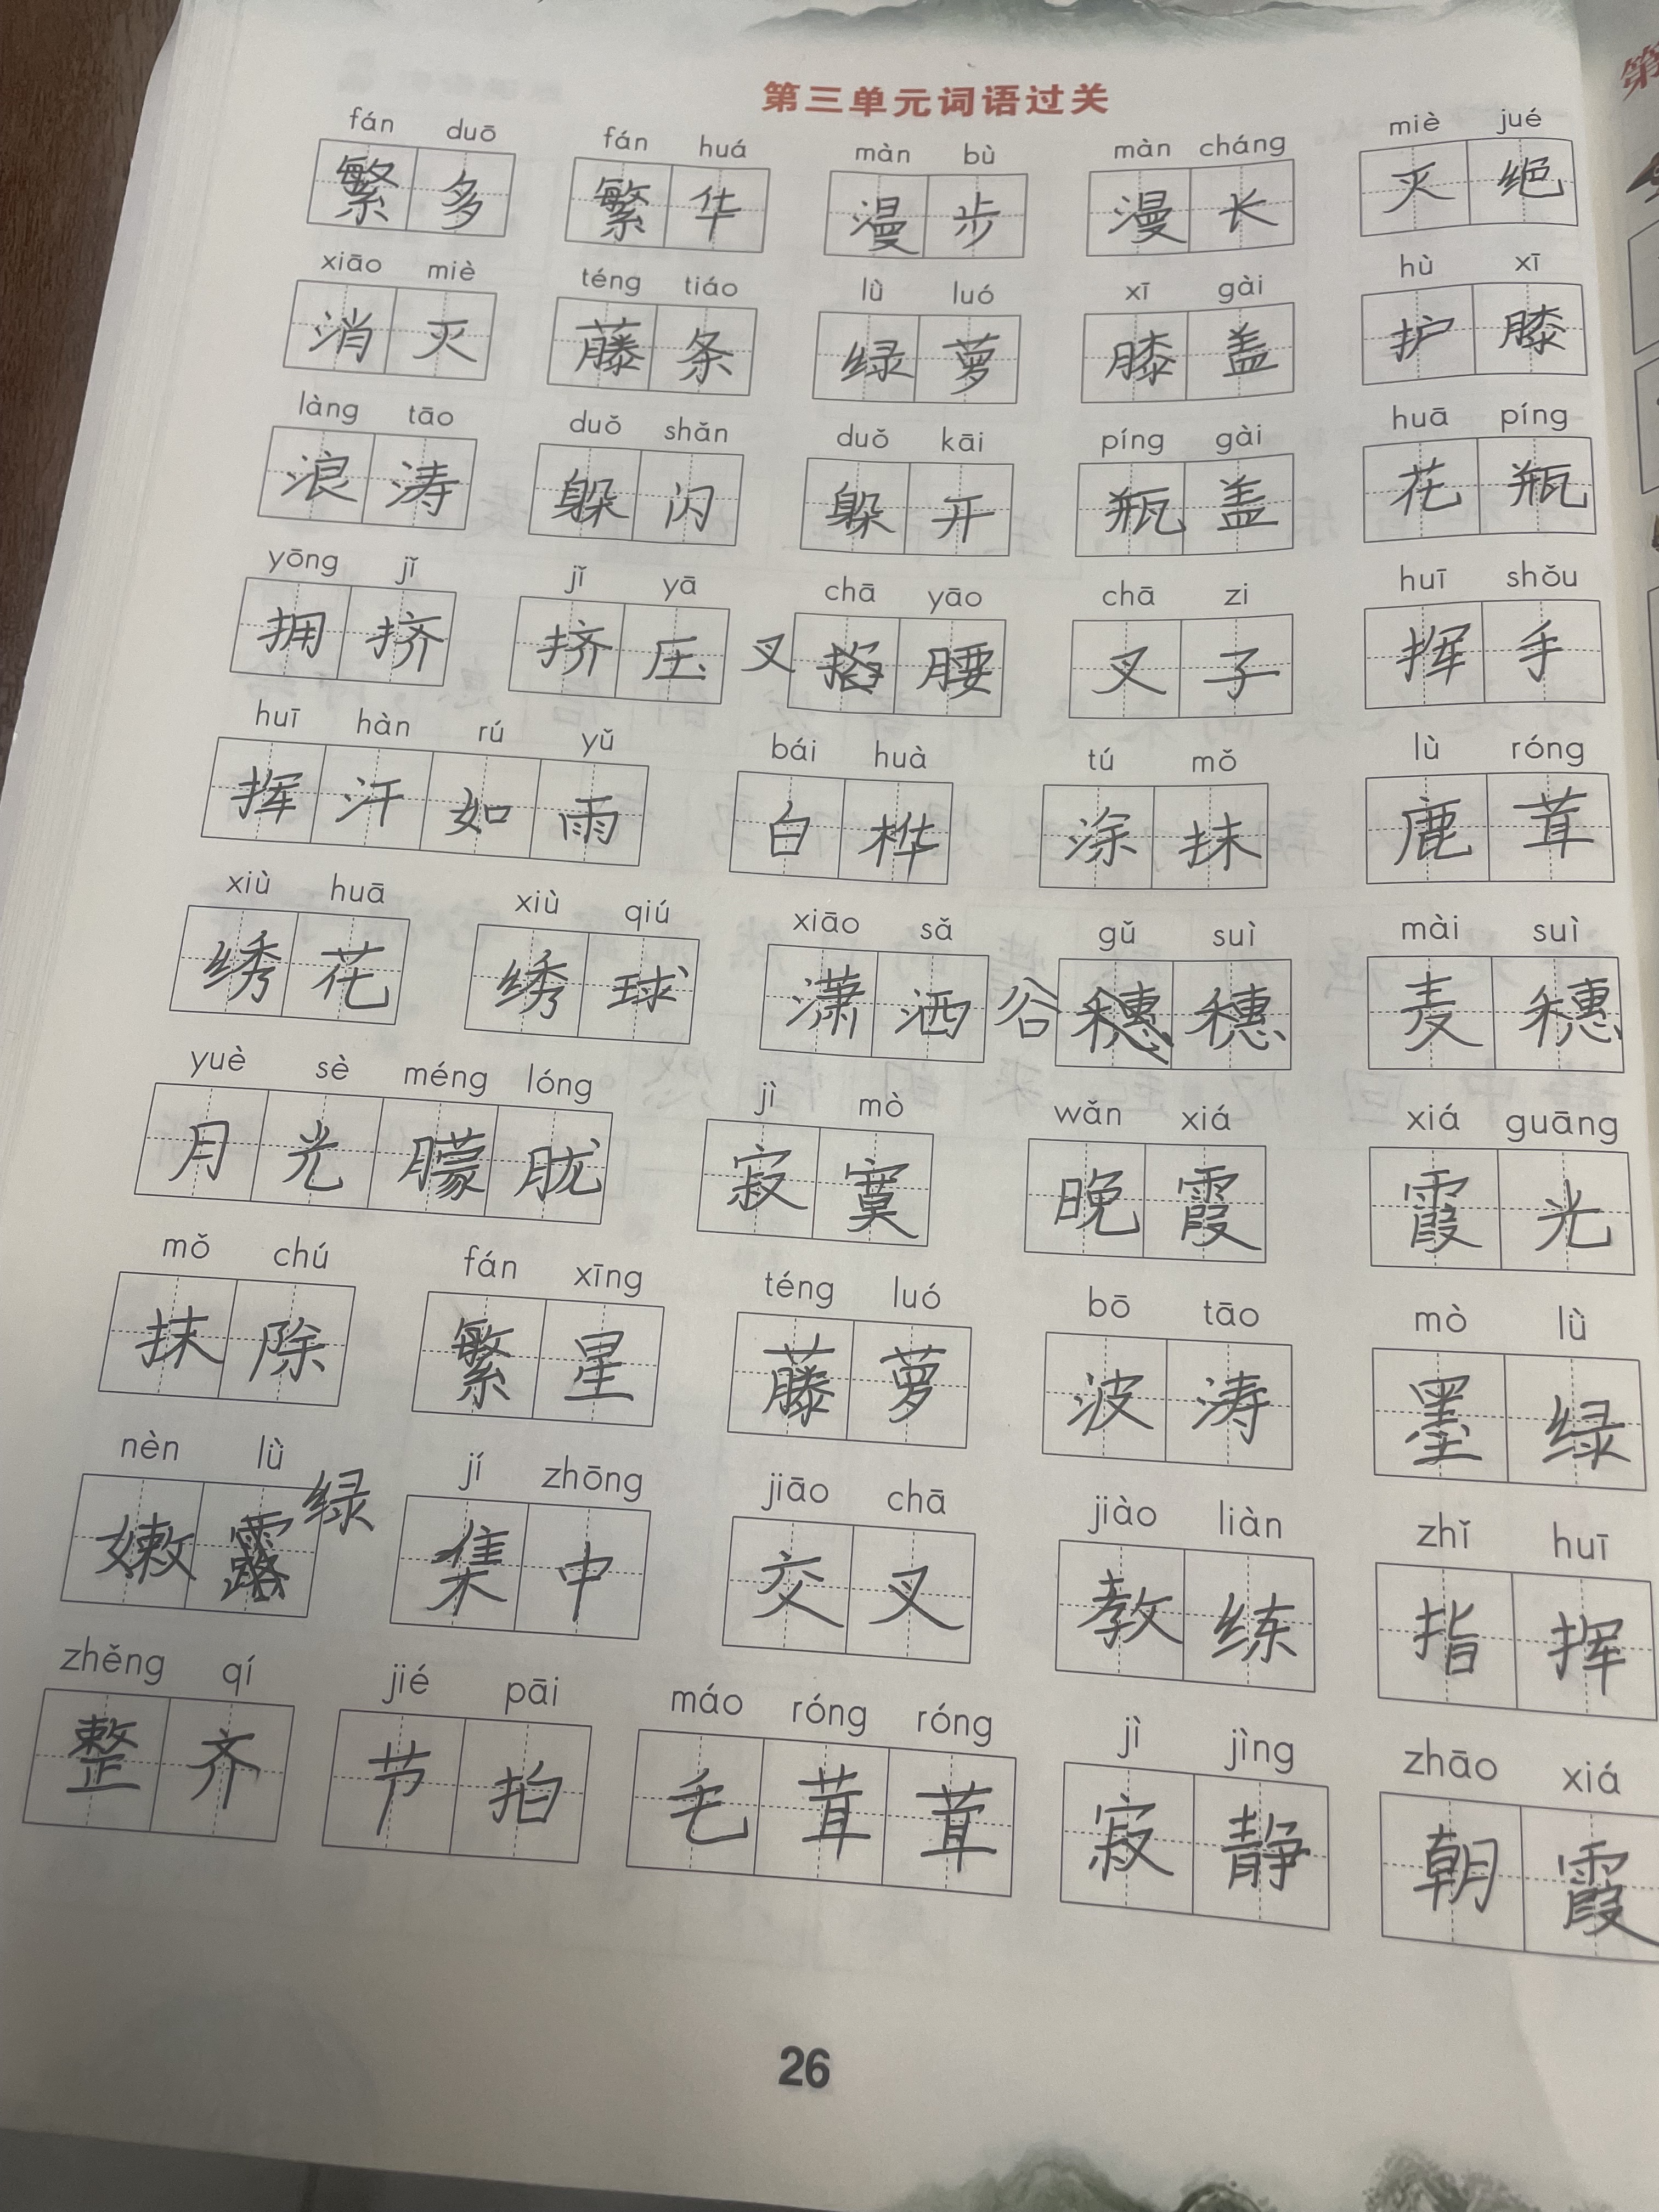 第三单元词语过关
fán duō fán huá màn bù màn cháng miè jué
繁多 繁华 漫步 漫长 灭绝
xiāo miè téng tiáo lǜ luó xī gài hù xī
消灭 藤条 绿萝 膝盖 护膝
làng tāo duǒ shǎn duǒ kāi píng gài huā píng
浪涛 躲闪 躲开 瓶盖 花瓶
yōng jǐ jǐ yā chā yāo chā zi huī shǒu
拥挤 挤压 叉腰 叉子 挥手
huī hàn rú yǔ bái huà tú mǒ lù róng
挥汗如雨 白桦 涂抹 鹿茸
xiù huā xiù qiú xiāo sǎ gǔ suì mài suì
绣花 绣球 潇洒 谷穗 麦穗
yuè sè méng lóng jì mò wǎn xiá xiá guāng
月光朦胧 寂寞 晚霞 霞光
mǒ chú fán xīng téng luó bō tāo mò lǜ
抹除 繁星 藤萝 波涛 墨绿
nèn lǜ jí zhōng jiāo chā jiào liàn zhǐ huī
嫩绿 集中 交叉 教练 指挥
zhěng qí jié pāi máo róng róng jì jìng zhāo xiá
整齐 节拍 毛茸茸 寂静 朝霞
26